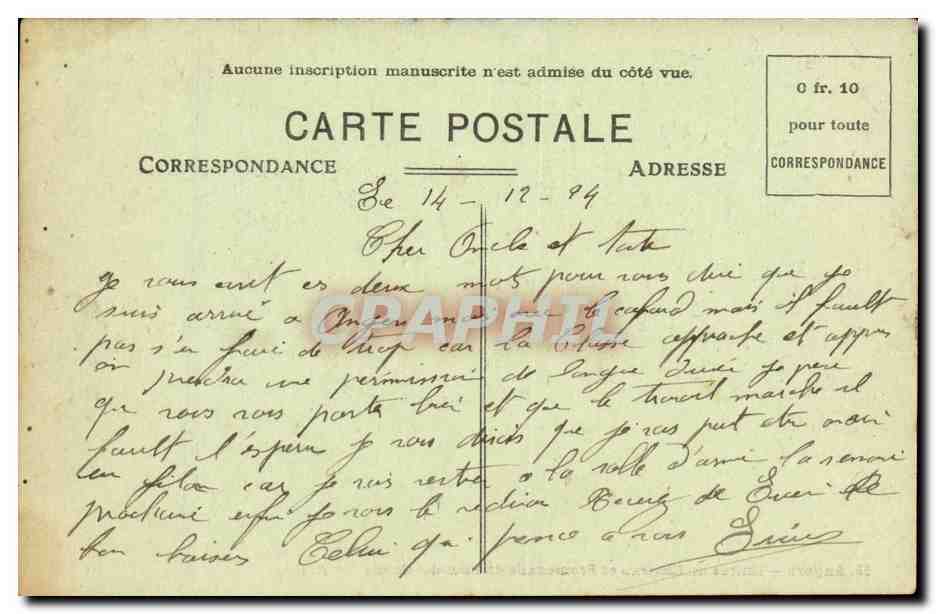 Aucune inscription manuscrite n'est admise du côté vue.
CARTE POSTALE
CORRESPONDANCE
ADRESSE
0 fr. 10
pour toute
CORRESPONDANCE
Le 14 - 12 - 24
Cher Oncle et tate
je vous ecrit ces deux mot pour vous dire que je
suis arrivé a Angers mais le cafard mais il fault
pas s'en faire de trop car la Classe approche et apprès
on prendra une permission de longue je pense
que vous vous porté bien et que le travail marche il
fault l'esperer je vous disais que je vas put etre avoir
un filon car je vais rester a la salle d'arme la semaine
prochaine enfin je vous le
bon baiser Celui qui pense a vous
CPAPHIL